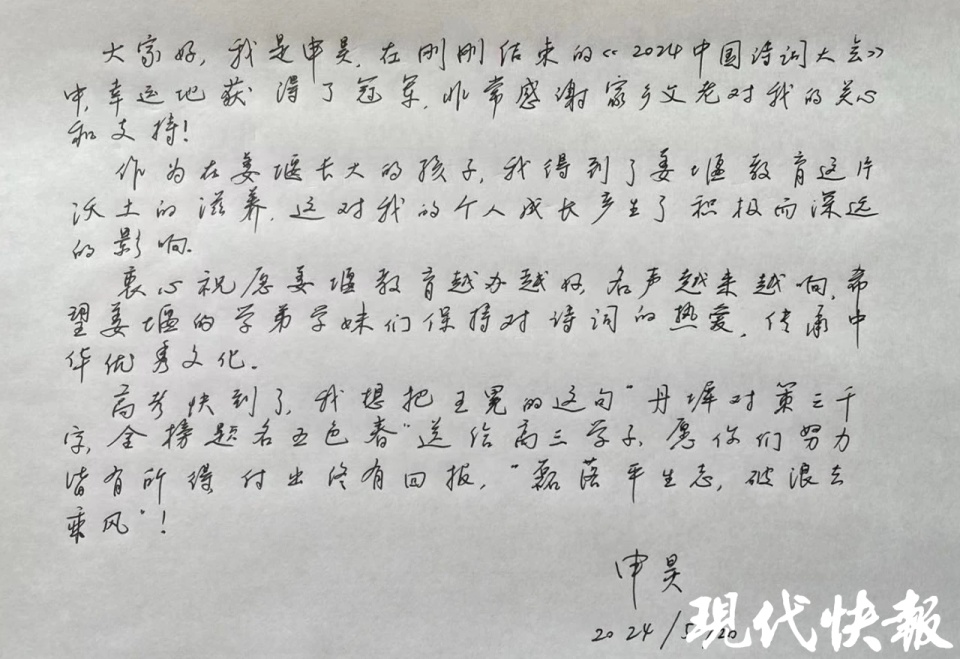 大家好，我是申昊，在刚刚结束的《2024中国诗词大会》
中，幸运地获得了冠军，非常感谢家乡父老对我的关心
和支持！
作为在姜堰长大的孩子，我得到了姜堰教育这片
沃土的滋养，这对我的个人成长产生了积极而深远
的影响。
衷心祝愿姜堰教育越办越好，名声越来越响，希
望姜堰的学弟学妹们保持对诗词的热爱，传承中
华优秀文化。
高考快到了，我想把王冕的这句“丹墀对策三千
字，金榜题名五色春”送给高三学子，愿你们努力
皆有所得，付出终有回报，“磊落平生志，破浪去
乘风”！
申昊
2024/5/20
现代快報